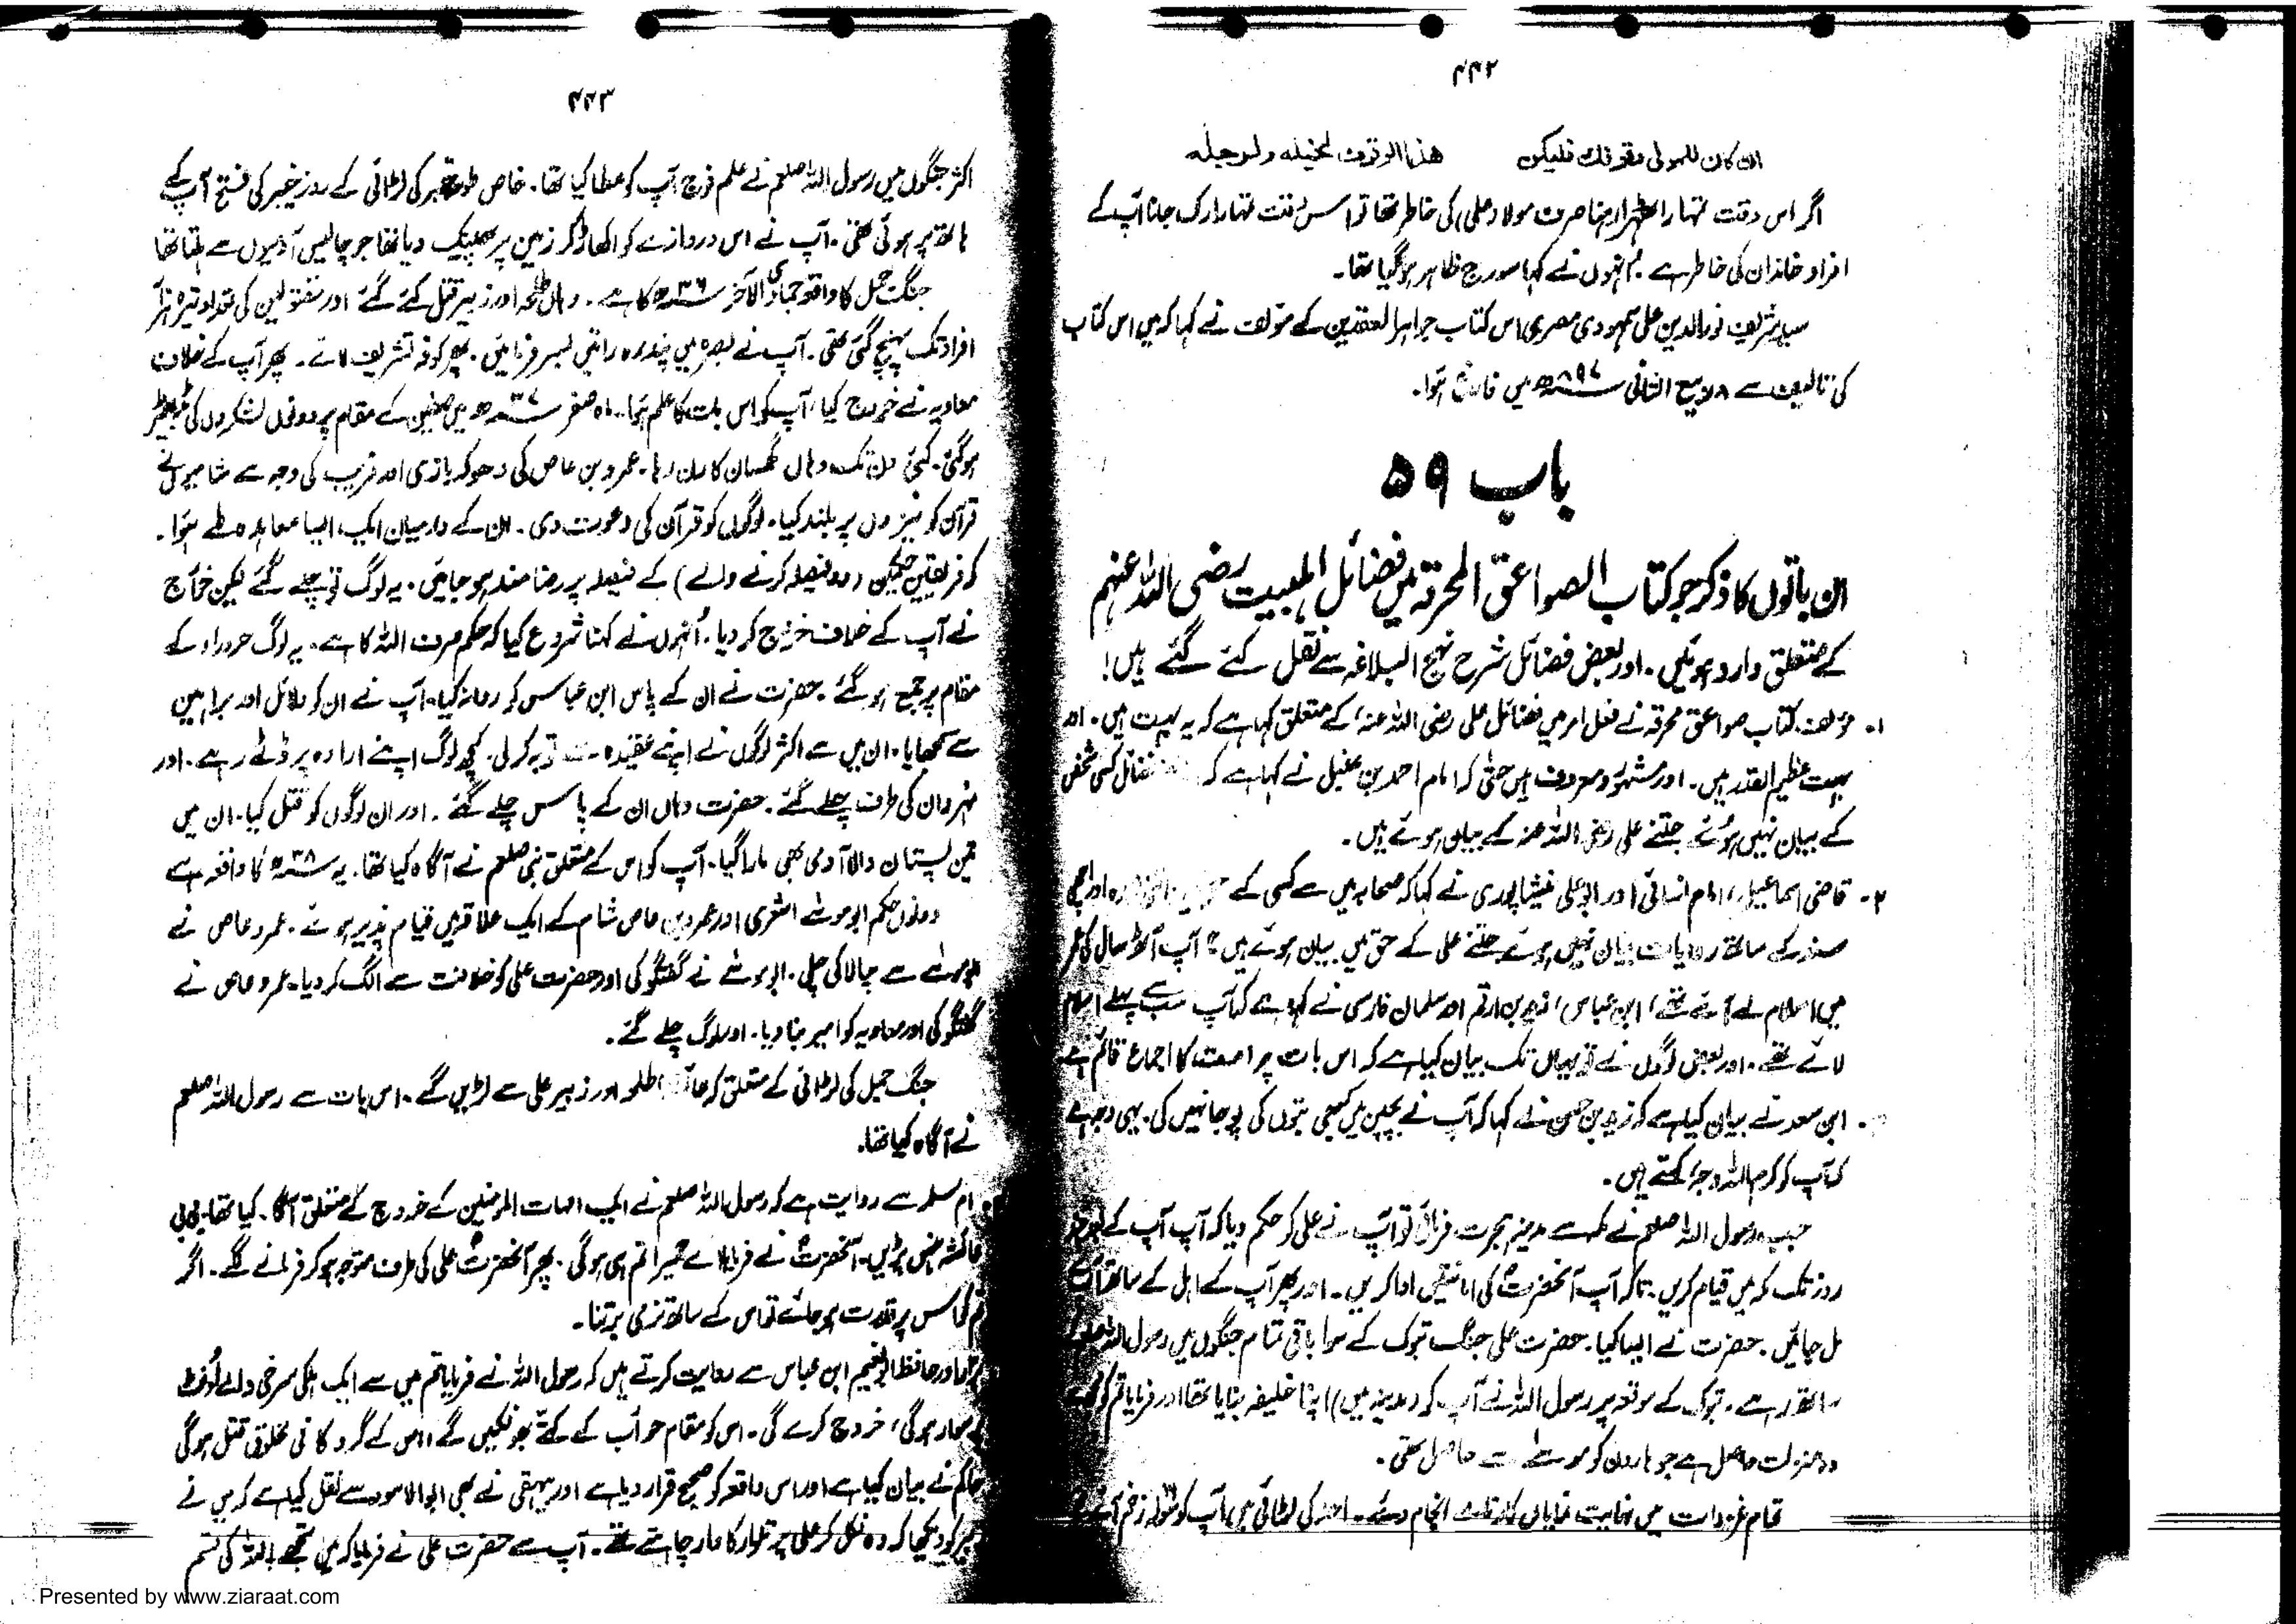 ۴۴۲
ان كان للمولى وقوفك فليكن هذا الوقوف لخيله ولرجله
اگر اس وقت تمہارا ٹھہرا رہنا صرف مولا (علی) کی خاطر تھا تو اس وقت تمہارا رک جانا آپ کے
افراد خاندان کی خاطر ہے انہوں نے کہا سورج ظاہر ہوگیا تھا۔
سید شریف نورالدین علی سمہودی مصری اس کتاب جواہر العقدین کے مؤلف نے کہا کہ میں اس کتاب
کی تالیف سے ۸ ربیع الثانی ۸۹۷ھ میں فارغ ہوا۔
باب ۵۹
ان باتوں کا ذکر جو کتاب الصواعق المحرقہ میں فضائل اہلبیت رضی اللہ عنہم
کے متعلق وارد ہوئیں۔ اور بعض فضائل شرح نہج البلاغہ سے نقل کئے گئے ہیں!
۱۔ مؤلف کتاب صواعق محرقہ نے فصل امر میں فضائل علی رضی اللہ عنہ کے متعلق کہا ہے کہ یہ بہت ہیں۔ اور
بہت عظیم القدر ہیں۔ اور مشہور و معروف ہیں حتٰی کہ امام احمد بن حنبل نے کہا ہے کہ فضائل کسی شخص
کے بیان نہیں ہوئے جتنے علی رضی اللہ عنہ کے بیان ہوئے ہیں۔
۲۔ قاضی اسماعیل، امام نسائی اور ابوعلی نیشاپوری نے کہا کہ صحابہ میں سے کسی کے اور اچھی
سند کے ساتھ روایات بیان نہیں ہوئے جتنے علی کے حق میں بیان ہوئے ہیں آپ آٹھ سال کی عمر
میں اسلام لے آئے تھے، ابن عباس، زید بن ارقم اور سلمان فارسی نے کہا ہے کہ آپ سب سے پہلے اسلام
لائے تھے۔ اور بعض لوگوں نے تو یہاں تک بیان کیا ہے کہ اس بات پر امت کا اجماع قائم ہے
ابن سعد نے بیان کیا ہے کہ زید بن حسن نے کہا کہ آپ نے بچپن میں کبھی بتوں کی پوجا نہیں کی۔ یہی وجہ ہے
کہ آپ کو کرم اللہ وجہہ کہتے ہیں۔
جب رسول اللہ صلعم نے مکہ سے مدینہ ہجرت فرمائی تو آپ نے علی کو حکم دیا کہ آپ آپ کے بعد چند
روز تک مکہ میں قیام کریں۔ تاکہ آپ آنحضرتؐ کی امانتیں ادا کریں۔ اور پھر آپ کے اہل کے ساتھ آپ سے
مل جائیں۔ حضرت نے ایسا کیا۔ حضرت علی جنگ تبوک کے سوا باقی تمام جنگوں میں رسول اللہ صلعم کے
ساتھ رہے۔ تبوک کے موقعہ پر رسول اللہ نے آپ کو (مدینہ میں) اپنا خلیفہ بنایا تھا اور فرمایا تم کو مجھ سے
وہ منزلت حاصل ہے جو ہارون کو موسٰے سے حاصل تھی۔
تمام غزوات میں نہایت نمایاں کارنامے انجام دئے۔ احد کی لڑائی میں آپ کو سولہ زخم آئے تھے
۴۴۳
اکثر جنگوں میں رسول اللہ صلعم نے علم فوج آپ کو عطا کیا تھا۔ خاص طور پر خیبر کی لڑائی کے روز خیبر کی فتح آپ کے
ہاتھ پر ہوئی تھی۔ آپ نے اس دروازے کو اکھاڑ کر زمین پر پھینک دیا تھا جو چالیس آدمیوں سے ہلتا تھا
جنگ جمل کا واقعہ جمادی الآخر ۳۶ھ کا ہے۔ وہاں طلحہ اور زبیر قتل کئے گئے اور مقتولین کی تعداد تیرہ ہزار
افراد تک پہنچ گئی تھی۔ آپ نے بصرہ میں پندرہ راتیں بسر فرمائیں۔ پھر کوفہ تشریف لائے۔ پھر آپ کے خلاف
معاویہ نے خروج کیا، آپ کو اس بات کا علم ہوا۔ ماہ صفر ۳۷ھ میں صفین کے مقام پر دونوں لشکروں کی مڈبھیڑ
ہوگئی۔ کئی دن تک وہاں گھمسان کا رن رہا۔ عمرو بن عاص کی دھوکہ بازی اور فریب کی وجہ سے شامیوں نے
قرآن کو نیزوں پر بلند کیا۔ لوگوں کو قرآن کی دعوت دی۔ ان کے درمیان ایک ایسا معاہدہ طے ہوا۔
کہ فریقین حکمین (دو فیصلہ کرنے والے) کے فیصلہ پر رضامند ہو جائیں۔ یہ لوگ تو چلے گئے لیکن خوارج
نے آپ کے خلاف خروج کر دیا۔ اُنہوں نے کہنا شروع کیا کہ حکم صرف اللہ کا ہے۔ یہ لوگ حروراء کے
مقام پر جمع ہو گئے۔ حضرت نے ان کے پاس ابن عباس کو روانہ کیا۔ آپ نے ان کو دلائل اور براہین
سے سمجھایا۔ ان میں سے اکثر لوگوں نے اپنے عقیدہ سے توبہ کرلی۔ کچھ لوگ اپنے ارادہ پر ڈٹے رہے۔ اور
نہروان کی طرف چلے گئے۔ حضرت وہاں ان کے پاس چلے گئے۔ اور ان لوگوں کو قتل کیا۔ ان میں
تین پستان والا آدمی بھی مارا گیا۔ آپ کو اس کے متعلق نبی صلعم نے آگاہ کیا تھا۔ یہ ۳۸ھ کا واقعہ ہے
دونوں حکم ابو موسٰے اشعری اور عمرو بن عاص شام کے ایک علاقہ میں قیام پذیر ہوئے۔ عمرو عاص نے
ابوموسٰے سے چالاکی چلی۔ ابوموسٰے نے گفتگو کی اور حضرت علی کو خلافت سے الگ کر دیا۔ عمرو عاص نے
گفتگو کی اور معاویہ کو امیر بنا دیا۔ اور لوگ چلے گئے۔
جنگ جمل کی لڑائی کے متعلق کہ طلحہ اور زبیر علی سے لڑیں گے۔ اس بات سے رسول اللہ صلعم
نے آگاہ کیا تھا۔
ام سلمہ سے روایت ہے کہ رسول اللہ صلعم نے ایک امہات المومنین کے خروج کے متعلق آگاہ کیا تھا۔ بی بی
عائشہ ہنس پڑیں۔ آنحضرتؐ نے فرمایا اے حمیرا تم ہی ہوگی۔ پھر آنحضرتؐ علی کی طرف متوجہ ہو کر فرمانے لگے۔ اگر
تم کو اس پر قدرت ہو جائے تو اس کے ساتھ نرمی برتنا۔
اور حافظ ابونعیم ابن عباس سے روایت کرتے ہیں کہ رسول اللہ نے فرمایا تم میں سے ایک ہلکی سرخی والے اُونٹ
پر سوار ہوگی، خروج کرے گی۔ اس کو مقام حوأب کے کتے بھونکیں گے، اس کے گرد کافی مخلوق قتل ہوگی
حاکم نے بیان کیا ہے اور اس واقعہ کو صحیح قرار دیا ہے اور بیہقی نے بھی ابوالاسود سے نقل کیا ہے کہ میں نے
زبیر کو دیکھا کہ وہ نکل کر علی پر تلوار کا وار چاہتے تھے۔ آپ سے حضرت علی نے فرمایا کہ میں تجھے اللہ کی قسم
Presented by www.ziaraat.com